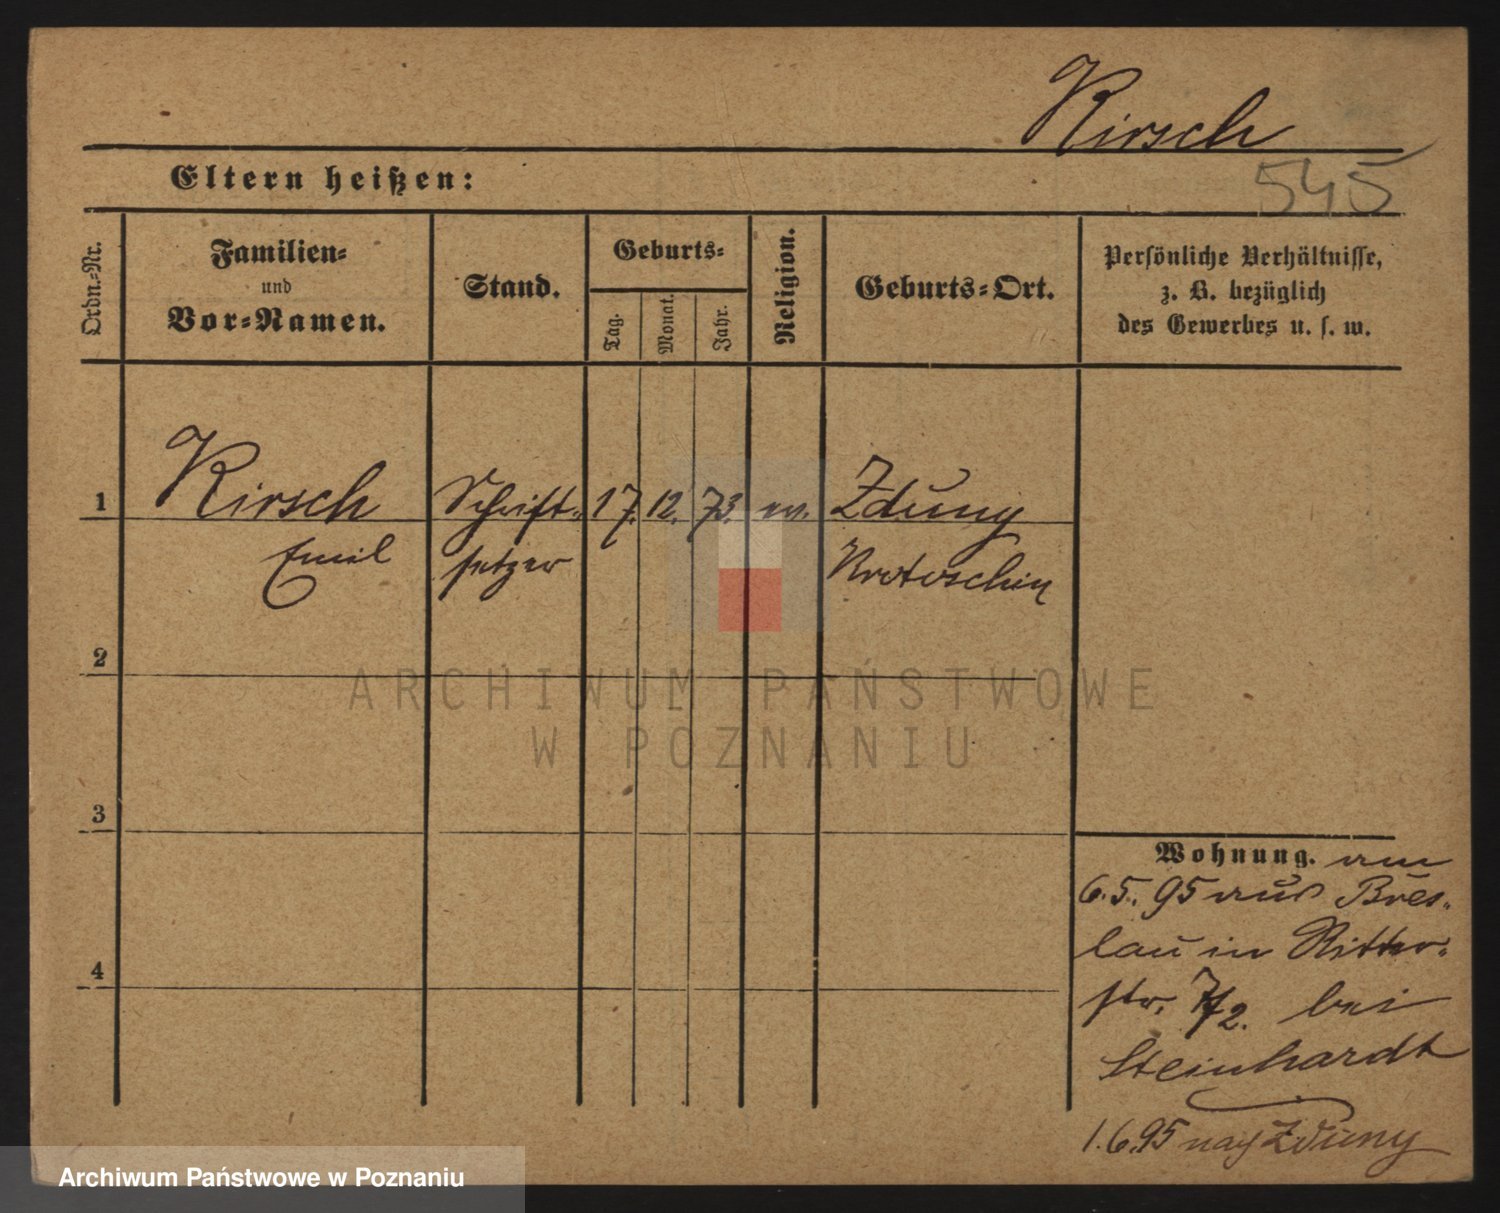 Kirsch
545
Eltern heißen:
Ordn.-Nr.
Familien-
und
Vor-Namen.
Stand.
Geburts-
Tag.
Monat.
Jahr.
Religion.
Geburts-Ort.
Persönliche Verhältnisse,
z. B. bezüglich
des Gewerbes u. s. w.
1 Kirsch Schrift- 17. 12. 73. ev. Zduny
Emil setzer Krotoschin
2
3
4
Wohnung. am
6.5.95 aus Bres-
lau in Ritter-
str. 7/2. bei
Steinhardt
1.6.95 nach Zduny
ARCHIWUM PAŃSTWOWE
W POZNANIU
Archiwum Państwowe w Poznaniu